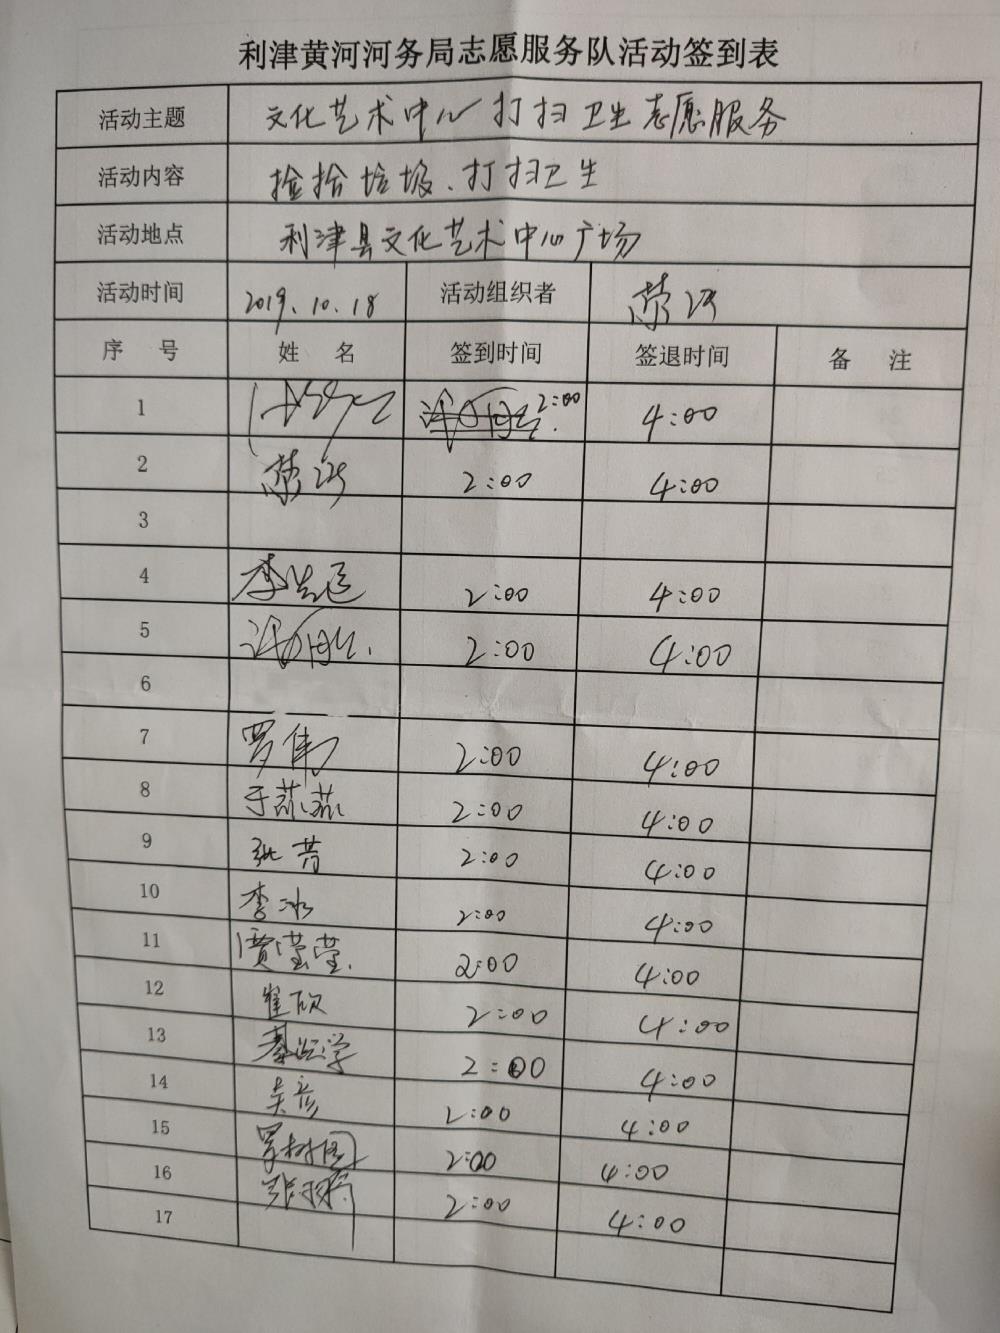 利津黄河河务局志愿服务队活动签到表
活动主题 文化艺术中心打扫卫生志愿服务
活动内容 捡拾垃圾、打扫卫生
活动地点 利津县文化艺术中心广场
活动时间 2019.10.18 活动组织者
序 号 姓 名 签到时间 签退时间 备 注
1 2:00 4:00
2 2:00 4:00
3
4 2:00 4:00
5 2:00 4:00
6
7 罗伟 2:00 4:00
8 于燕燕 2:00 4:00
9 张菁 2:00 4:00
10 李冰 2:00 4:00
11 贾莹莹 2:00 4:00
12 崔欣 2:00 4:00
13 2:00 4:00
14 吴彦 2:00 4:00
15 2:00 4:00
16 2:00 4:00
17